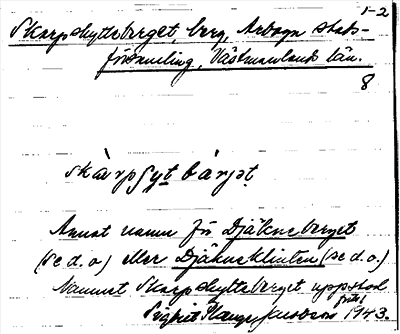 1-2
Skarpskytteberget, berg, Arboga stads-
församling, Västmanlands län.
8
skàrpʃytbärjət
Annat namn för Djäkneberget
(se d.o.) eller Djäkneklinten (se d.o.)
Namnet Skarpskytteberget uppstod
före
Sigfrid Jansson 1943.